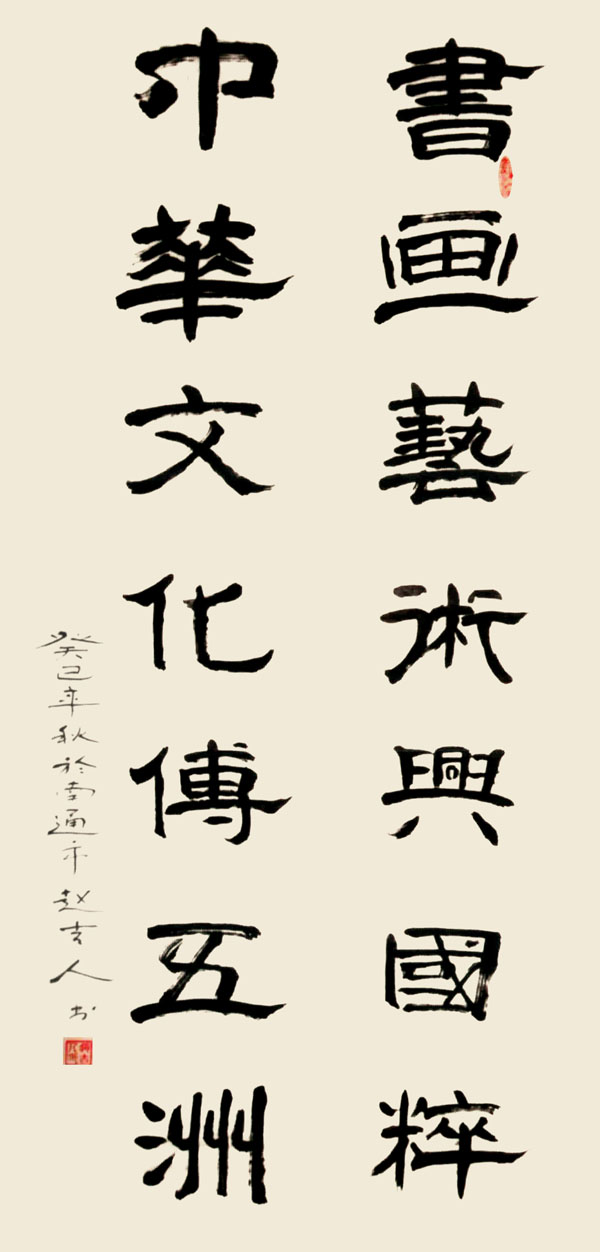 書画藝術興國粹
中華文化傳五洲
癸巳年秋於南通市赵吉人书